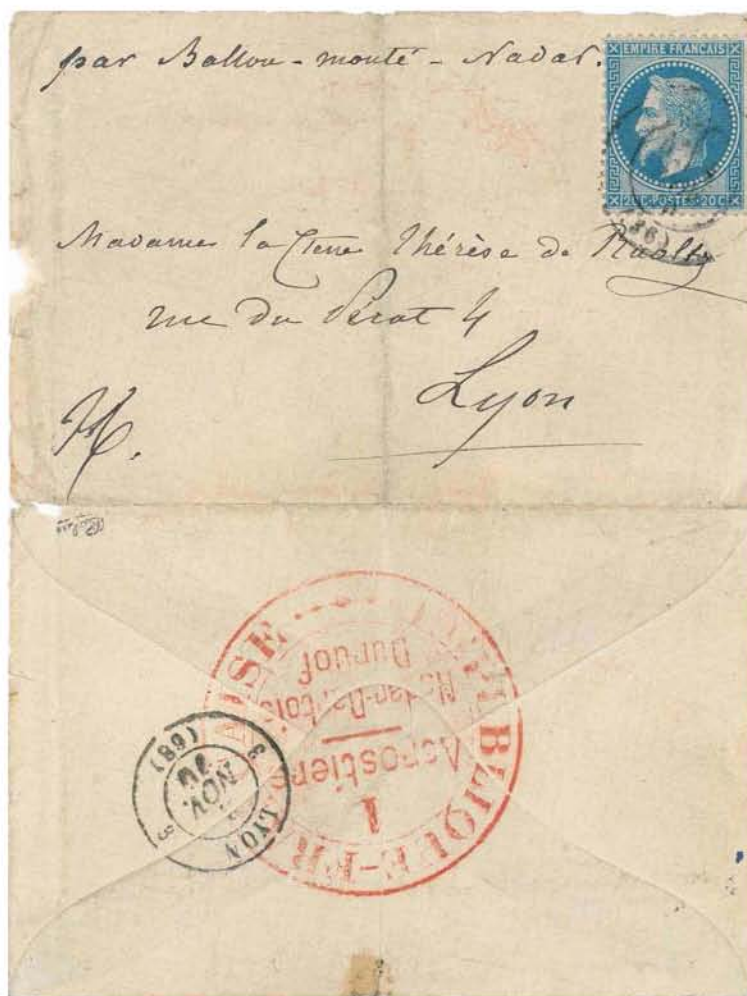 par Ballon - monté - Nadar.
EMPIRE FRANÇAIS
20C-POSTES-20C
Madame la Ctesse Thérèse de
rue du Pérat 4
Lyon
RÉPUBLIQUE-FRANÇAISE
1
Aérostiers
Nadar-Dartois
Duruof
LYON
3
NOV.
70
(68)